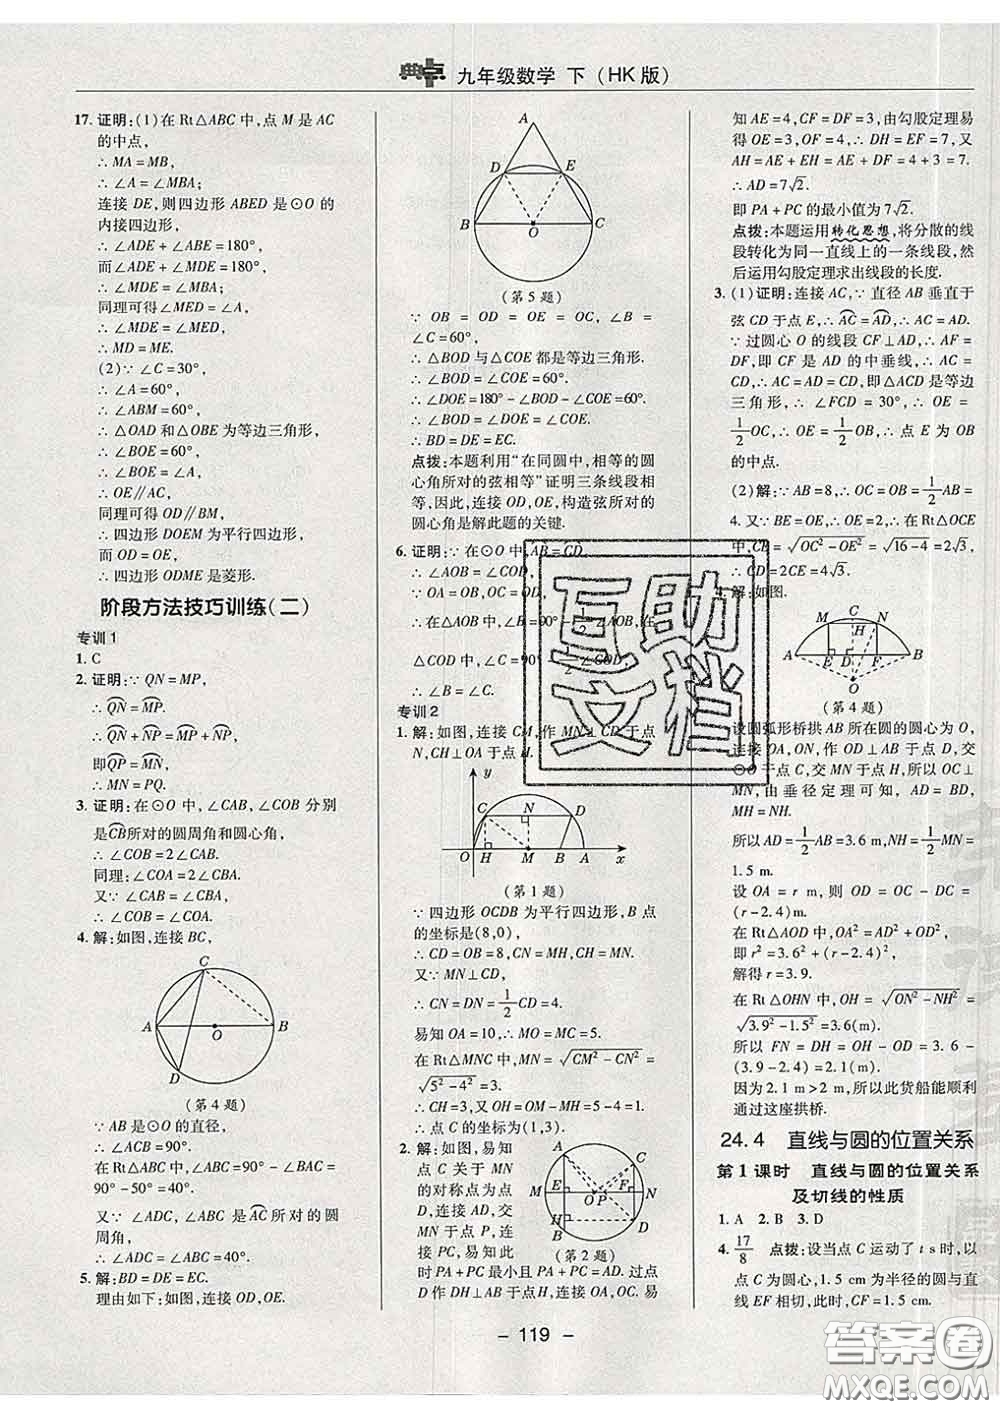 典点 九年级数学 下（HK版）
17. 证明:(1)在 Rt△ABC 中,点 M 是 AC
的中点,
∴ MA = MB,
∴ ∠A = ∠MBA;
连接 DE,则四边形 ABED 是⊙O 的
内接四边形,
∴ ∠ADE + ∠ABE = 180°,
而∠ADE + ∠MDE = 180°,
∴ ∠MDE = ∠MBA;
同理可得∠MED = ∠A,
∴ ∠MDE = ∠MED,
∴ MD = ME.
(2)∵ ∠C = 30°,
∴ ∠A = 60°,
∴ ∠ABM = 60°,
∴ △OAD 和△OBE 为等边三角形,
∴ ∠BOE = 60°,
∴ ∠BOE = ∠A,
∴ OE∥AC,
同理可得 OD∥BM,
∴ 四边形 DOEM 为平行四边形,
而 OD = OE,
∴ 四边形 ODME 是菱形.
阶段方法技巧训练(二)
专训 1
1. C
2. 证明:∵ QN = MP,
∴ QN = MP.
∴ QN + NP = MP + NP,
即QP = MN,
∴ MN = PQ.
3. 证明:在⊙O 中,∠CAB,∠COB 分别
是CB所对的圆周角和圆心角,
∴ ∠COB = 2∠CAB,
同理:∠COA = 2∠CBA.
又∵ ∠CAB = ∠CBA,
∴ ∠COB = ∠COA.
4. 解:如图,连接 BC,
C
A
O
B
D
(第 4 题)
∵ AB 是⊙O 的直径,
∴ ∠ACB = 90°.
在 Rt△ABC 中,∠CAB + ∠ABC
= 90°.
又∵ ∠CAB = 50°,
∴ ∠ABC = 40°.
又∵ ∠ADC,∠ABC 是AC所对的圆
周角,
∴ ∠ADC = ∠ABC = 40°.
5. 解:BD = DE = EC.
理由如下:如图,连接 OD,OE.
A
D
E
B
O
C
(第 5 题)
∵ OB = OD = OE = OC, ∠B =
∠C = 60°,
∴ △BOD 与△COE 都是等边三角形.
∴ ∠BOD = ∠COE = 60°.
∴ ∠DOE = 180° − ∠BOD − ∠COE = 60°.
∴ ∠BOD = ∠DOE = ∠COE = 60°.
∴ BD = DE = EC.
点拨:本题利用“在同圆中,相等的圆
心角所对的弦相等”证明三条线段相
等,因此,连接 OD,OE,构造弦所对的
圆心角是解此题的关键.
6. 证明:∵ 在⊙O 中,AB = CD,
∴ ∠AOB = ∠COD.
∵ OA = OB, OC = OD,
∴ 在△AOB 中,∠B = 90° − 1/2 ∠AOB, 在
△COD 中,∠C = 90° − 1/2 ∠COD,
∴ ∠B = ∠C.
专训 2
1. 解:如图,连接 CM,作 MN⊥CD 于点
N,CH⊥OA 于点 H.
y
C
N
D
O
H
M
B
A
x
(第 1 题)
∵ 四边形 OCDB 为平行四边形,B 点
的坐标是(8,0),
∴ CD = OB = 8,CN = MH,CH = MN.
又∵ MN⊥CD,
∴ CN = DN = 1/2 CD = 4.
易知 OA = 10,∴ MO = MC = 5.
在 Rt△MNC 中,MN = √(CM² − CN²) =
√(5² − 4²) = 3.
∴ CH = 3,又 OH = OM − MH = 5 − 4 = 1.
∴ 点 C 的坐标为(1,3).
2. 解:如图,易知
点 C 关于 MN
的对称点为点
D,连接 AD,
交 MN 于点 P,连接 PC,易知此
时 PA + PC 最小且 PA + PC = AD. 过点
D 作 DH⊥AB 于点 H,连接 OA,OC. 易
A
C
M
E
O
P
F
N
H
B
D
(第 2 题)
知 AE = 4,CF = DF = 3,由勾股定理易
得 OE = 3,OF = 4,∴ DH = EF = 7,又
AH = AE + EH = AE + DF = 4 + 3 = 7.
∴ AD = 7√2.
即 PA + PC 的最小值为 7√2.
点拨:本题运用转化思想,将分散的线
段转化为同一直线上的一条线段,然
后运用勾股定理求出线段的长度.
3. (1)证明:连接 AC,∵ 直径 AB 垂直于
弦 CD 于点 E,∴ AC = AD,∴ AC = AD.
∵ 过圆心 O 的线段 CF⊥AD,∴ AF =
DF,即 CF 是 AD 的中垂线,∴ AC =
CD,∴ AC = AD = CD,即△ACD 是等边
三角形,∴ ∠FCD = 30°,∴ OE =
1/2 OC,∴ OE = 1/2 OB,∴ 点 E 为 OB
的中点.
(2)解:∵ AB = 8,∴ OC = 1/2 AB =
4. 又∵ BE = OE,∴ OE = 2,∴ 在Rt△OCE
中,CE = √(OC² − OE²) = √(16 − 4) = 2√3,
∴ CD = 2CE = 4√3.
4. 解:如图.
C
M
H
N
A
E
D
F
B
O
(第 4 题)
设圆弧形桥拱 AB 所在圆的圆心为 O,
连接 OA,ON,作 OD⊥AB 于点 D,交
⊙O 于点 C,交 MN 于点 H,
由垂径定理可知, AD = BD,
MH = NH.
所以 AD = 1/2 AB = 3.6 m,NH = 1/2 MN =
1.5 m.
设 OA = r m, 则 OD = OC − DC =
(r − 2.4)m.
在 Rt△AOD 中,OA² = AD² + OD²,
即 r² = 3.6² + (r − 2.4)²,
解得 r = 3.9.
在 Rt△OHN 中,OH = √(ON² − NH²) =
√(3.9² − 1.5²) = 3.6(m).
所以 FN = DH = OH − OD = 3.6 −
(3.9 − 2.4) = 2.1(m).
因为 2.1 m > 2 m,所以此货船能顺利
通过这座拱桥.
24.4 直线与圆的位置关系
第 1 课时 直线与圆的位置关系
及切线的性质
1. A 2. B 3. D
4. 17/8 点拨:设当点 C 运动了 t s 时,以
点 C 为圆心,1.5 cm 为半径的圆与直
线 EF 相切,此时,CF = 1.5 cm.
− 119 −
互助文档
答案圈
MXQE.COM